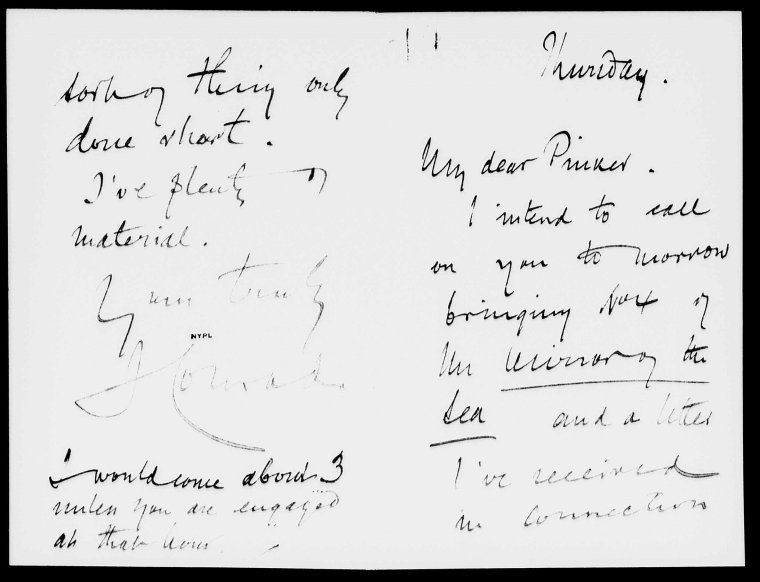 Thursday.
My dear Pinker.
I intend to call
on you to morrow
bringing No 4 of
the Mirror of the
Sea and a letter
I've received
in connection
sort of thing only
done short.
I've plenty of
material.
Yours truly
NYPL
J Conrad.
I would come about 3
unless you are engaged
at that hour